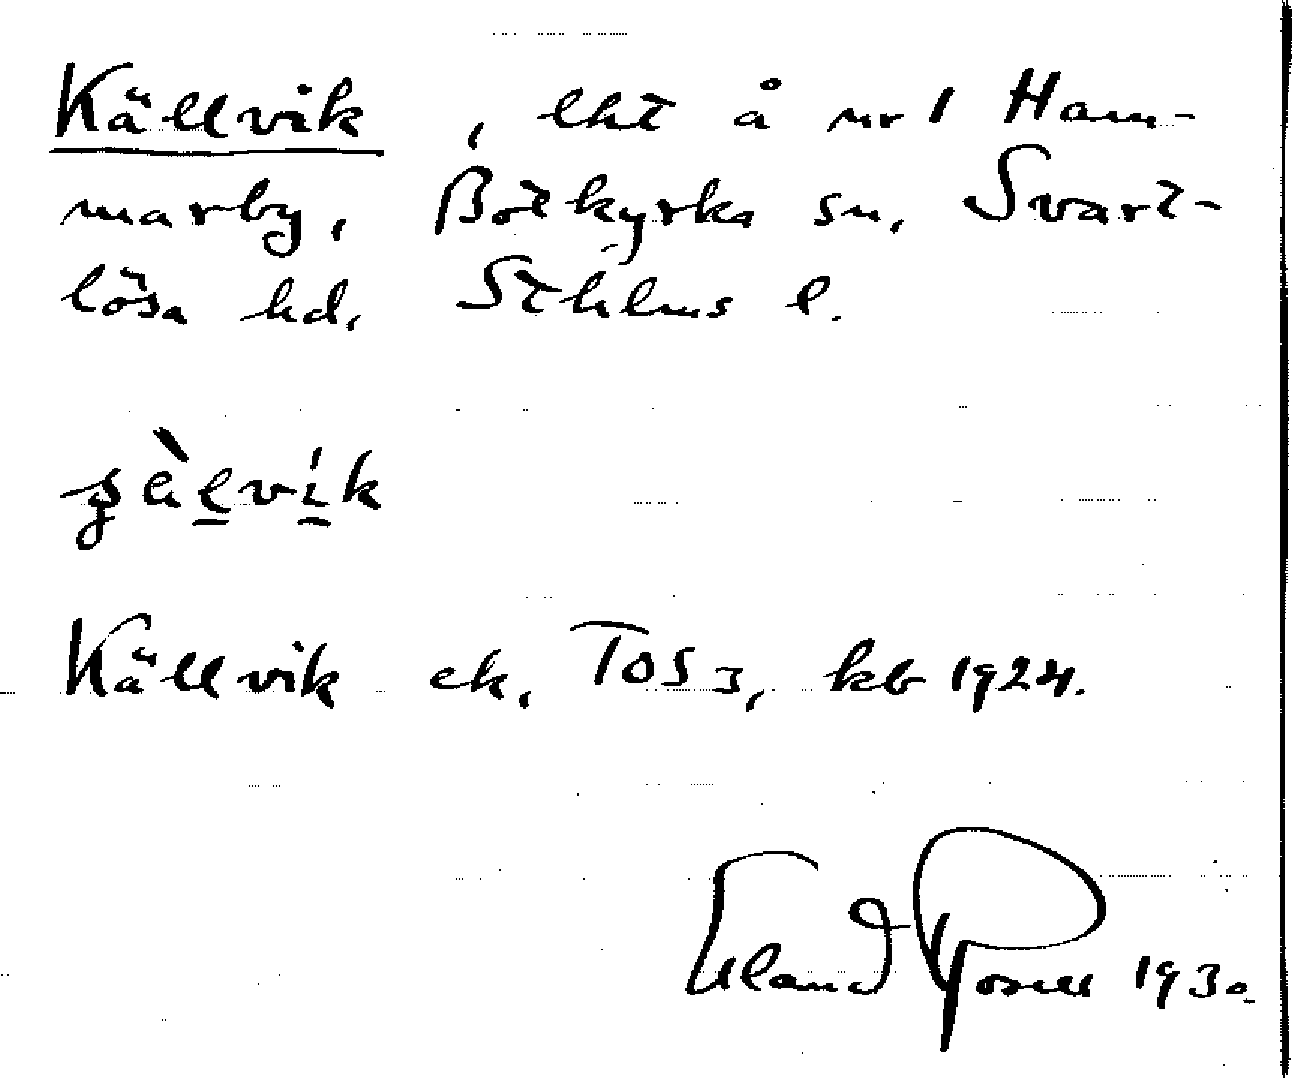 Källvik, lht å nr 1 Ham-
marby, Botkyrka sn, Svart-
lösa hd, Sthlms l.
Källvik ek. TOS 3, kb 1924.
Erland Rosell 1930